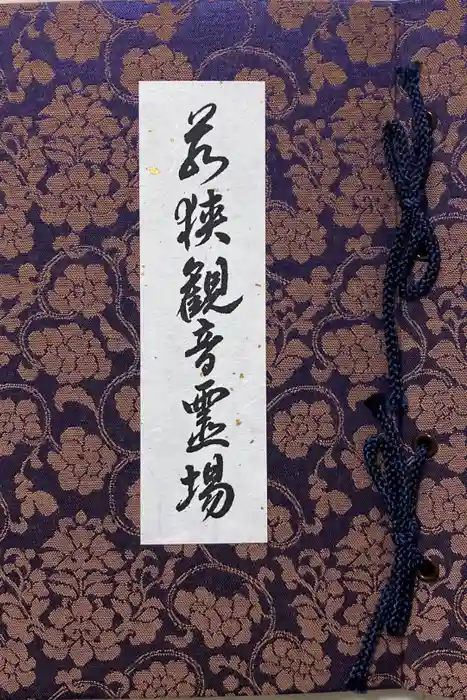 若狭観音霊場